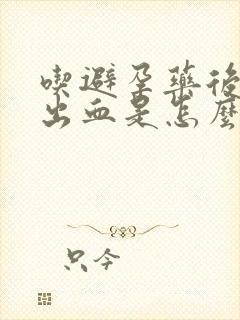 喫避孕藥後
出血是怎麼
只今